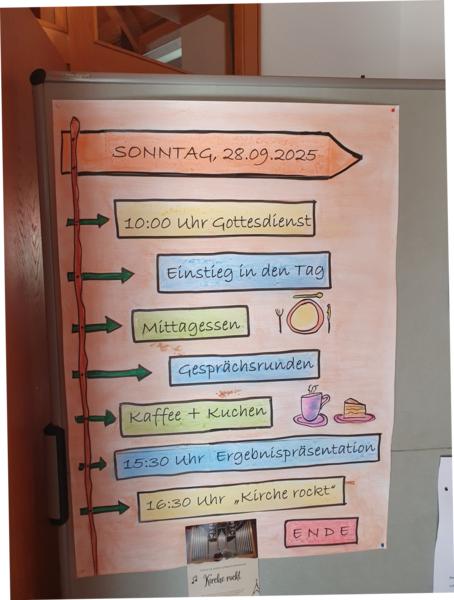 SONNTAG, 28.09.2025
10:00 Uhr Gottesdienst
Einstieg in den Tag
Mittagessen
Gesprächsrunden
Kaffee + Kuchen
15:30 Uhr Ergebnispräsentation
16:30 Uhr „Kirche rockt“
ENDE
Kirche rockt